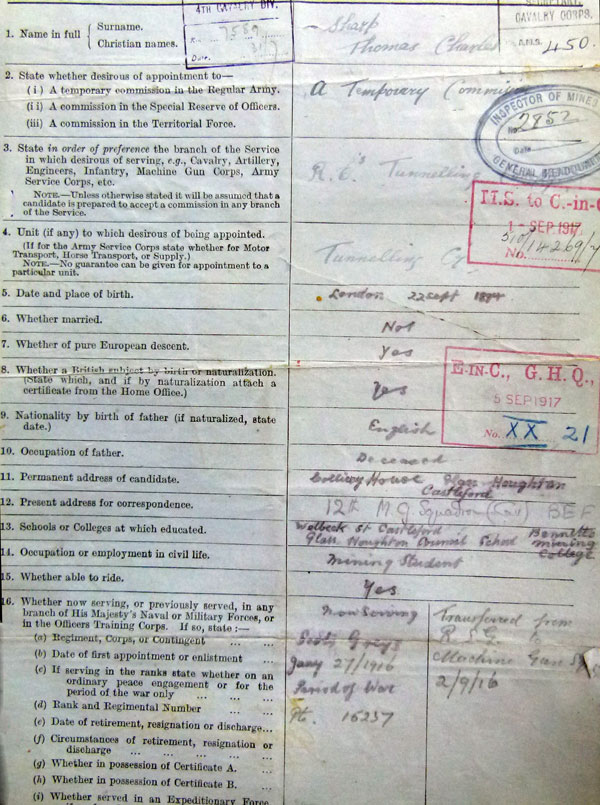 4TH CAVALRY DIV.
7589
Date.
SECRETARY,
CAVALRY CORPS.
A.M.S. 450.
1. Name in full { Surname. Sharp
Christian names. Thomas Charles
2. State whether desirous of appointment to—
(i) A temporary commission in the Regular Army. A Temporary
(ii) A commission in the Special Reserve of Officers.
(iii) A commission in the Territorial Force.
INSPECTOR OF MINES
No. 2852
Date
GENERAL HEADQUARTERS
3. State in order of preference the branch of the Service
in which desirous of serving, e.g., Cavalry, Artillery,
Engineers, Infantry, Machine Gun Corps, Army
Service Corps, etc. R.E's Tunnelling
NOTE.—Unless otherwise stated it will be assumed that a
candidate is prepared to accept a commission in any branch
of the Service.
to C.-in-C
1 - SEP 1917
No.
4. Unit (if any) to which desirous of being appointed.
(If for the Army Service Corps state whether for Motor
Transport, Horse Transport, or Supply.) Tunnelling Cy.
NOTE.—No guarantee can be given for appointment to a
particular unit.
5. Date and place of birth. London 22 Sept
6. Whether married. Not
7. Whether of pure European descent. Yes
8. Whether a British subject by birth or naturalization.
(State which, and if by naturalization attach a
certificate from the Home Office.) Yes
E-IN-C., G. H. Q.,
5 SEP 1917
No. XX 21
9. Nationality by birth of father (if naturalized, state
date.) English
10. Occupation of father. Deceased
11. Permanent address of candidate. Colliery House Glass Houghton
Castleford
12. Present address for correspondence. 12th M G Squadron (Cav) BEF
13. Schools or Colleges at which educated. Welbeck St Castleford
Glass Houghton Council School
Bennetts
Mining
College
14. Occupation or employment in civil life. Mining Student
15. Whether able to ride. Yes
16. Whether now serving, or previously served, in any
branch of His Majesty's Naval or Military Forces, or
in the Officers Training Corps. If so, state :— Now Serving Transferred from
(a) Regiment, Corps, or Contingent ... ... Scots Greys R S G
(b) Date of first appointment or enlistment ... Jany 27/1916 Machine Gun
(c) If serving in the ranks state whether on an
ordinary peace engagement or for the
period of the war only ... ... ... Period of War 2/9/16
(d) Rank and Regimental Number ... ... Pte. 16237
(e) Date of retirement, resignation or discharge...
(f) Circumstances of retirement, resignation or
discharge ... ... ... ...
(g) Whether in possession of Certificate A. ...
(h) Whether in possession of Certificate B. ...
(i) Whether served in an Expeditionary Force